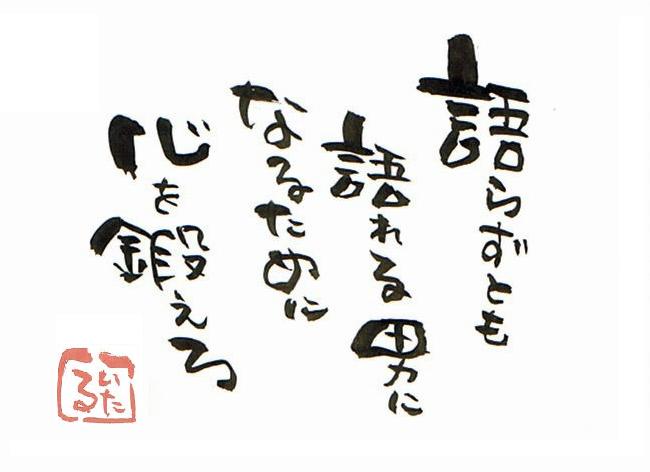 語らずとも
語れる男に
なるために
心を鍛えろ
いたる